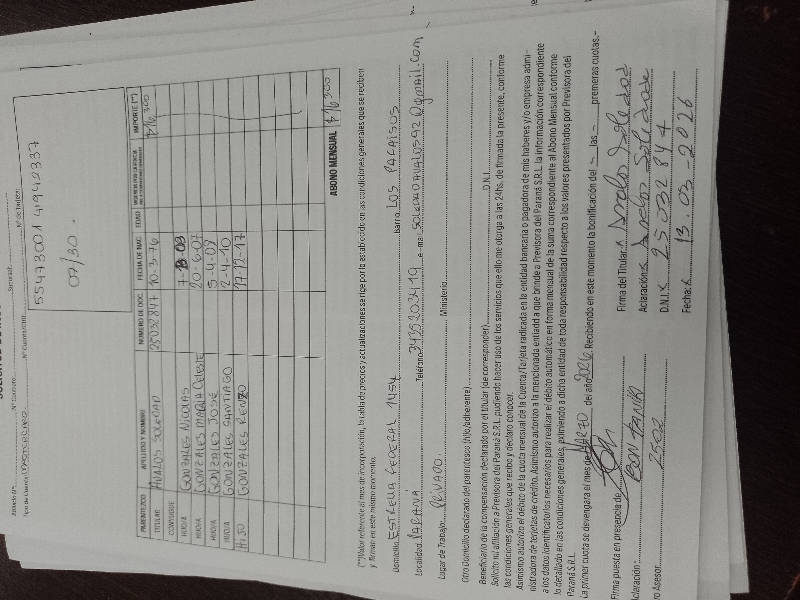 SOLICITUD DE
Afiliado Nº: Nº Contrato: Sucursal:
Tipo de Cuenta: MASTERCARD Nº Cuenta/CBU: Nº de Tarjeta:
5547300141942337
07/30.
PARENTEZCO APELLIDO Y NOMBRE NUMERO DE DOC. FECHA DE NAC. EDAD IMPORTE (*)
TITULAR AVALOS SOLEDAD 25032847 10-3-76 $16300
CONYUGE
HIJO/A GONZALES NICOLAS 7-3-03
HIJO/A GONZALES MARIA CELESTE 20-6-07
HIJO/A GONZALES JOSÉ 5-4-09
HIJO/A GONZALES SANTIAGO 2-4-10
HIJO GONZALES RENZO 17-12-17
ABONO MENSUAL $16300
(*) Valor referente al mes de incorporación, la tabla de precios y actualizaciones se rige por lo establecido en las condiciones generales que se reciben
y firman en este mismo momento.
Domicilio: ESTRELLA FEDERAL 1454 Barrio: LOS PARAISOS
Localidad: PARANA Teléfono: 3435203419 e-mail: SOLEDADAVALOS92@gmail.com
Lugar de Trabajo: PRIVADO. Ministerio:
Otro Domicilio declarado del parentesco (hijo/adherente)
Beneficiario de la compensación declarado por el titular (de corresponder) D.N.I.
Solicito mi afiliación a Previsora del Paraná S.R.L. pudiendo hacer uso de los servicios que ello me otorga a las 24hs. de firmada la presente, conforme
las condiciones generales que recibo y declaro conocer.
Asimismo autorizo el débito de la cuota mensual de la Cuenta/Tarjeta radicada en la entidad bancaria o pagadora de mis haberes y/o empresa admi-
nistradora de tarjetas de crédito. Asimismo autorizo a la mencionada entidad a que brinde a Previsora del Paraná S.R.L. la información correspondiente
a los datos identificatorios necesarios para realizar el débito automático en forma mensual de la suma correspondiente al Abono Mensual conforme
lo detallado en las condiciones generales, eximiendo a dicha entidad de toda responsabilidad respecto a los valores presentados por Previsora del
Paraná S.R.L.
La primer cuota se devengara el mes de MARZO del año 2026. Recibiendo en este momento la bonificación del - las - premeras cuotas.-
Firma puesta en presencia de Firma del Titular: x Avalos Soledad
Aclaración: Aclaración: x Avalos Soledad
ro Asesor: 2502 D.N.I. x 25032847
Fecha: x 13.03-2026